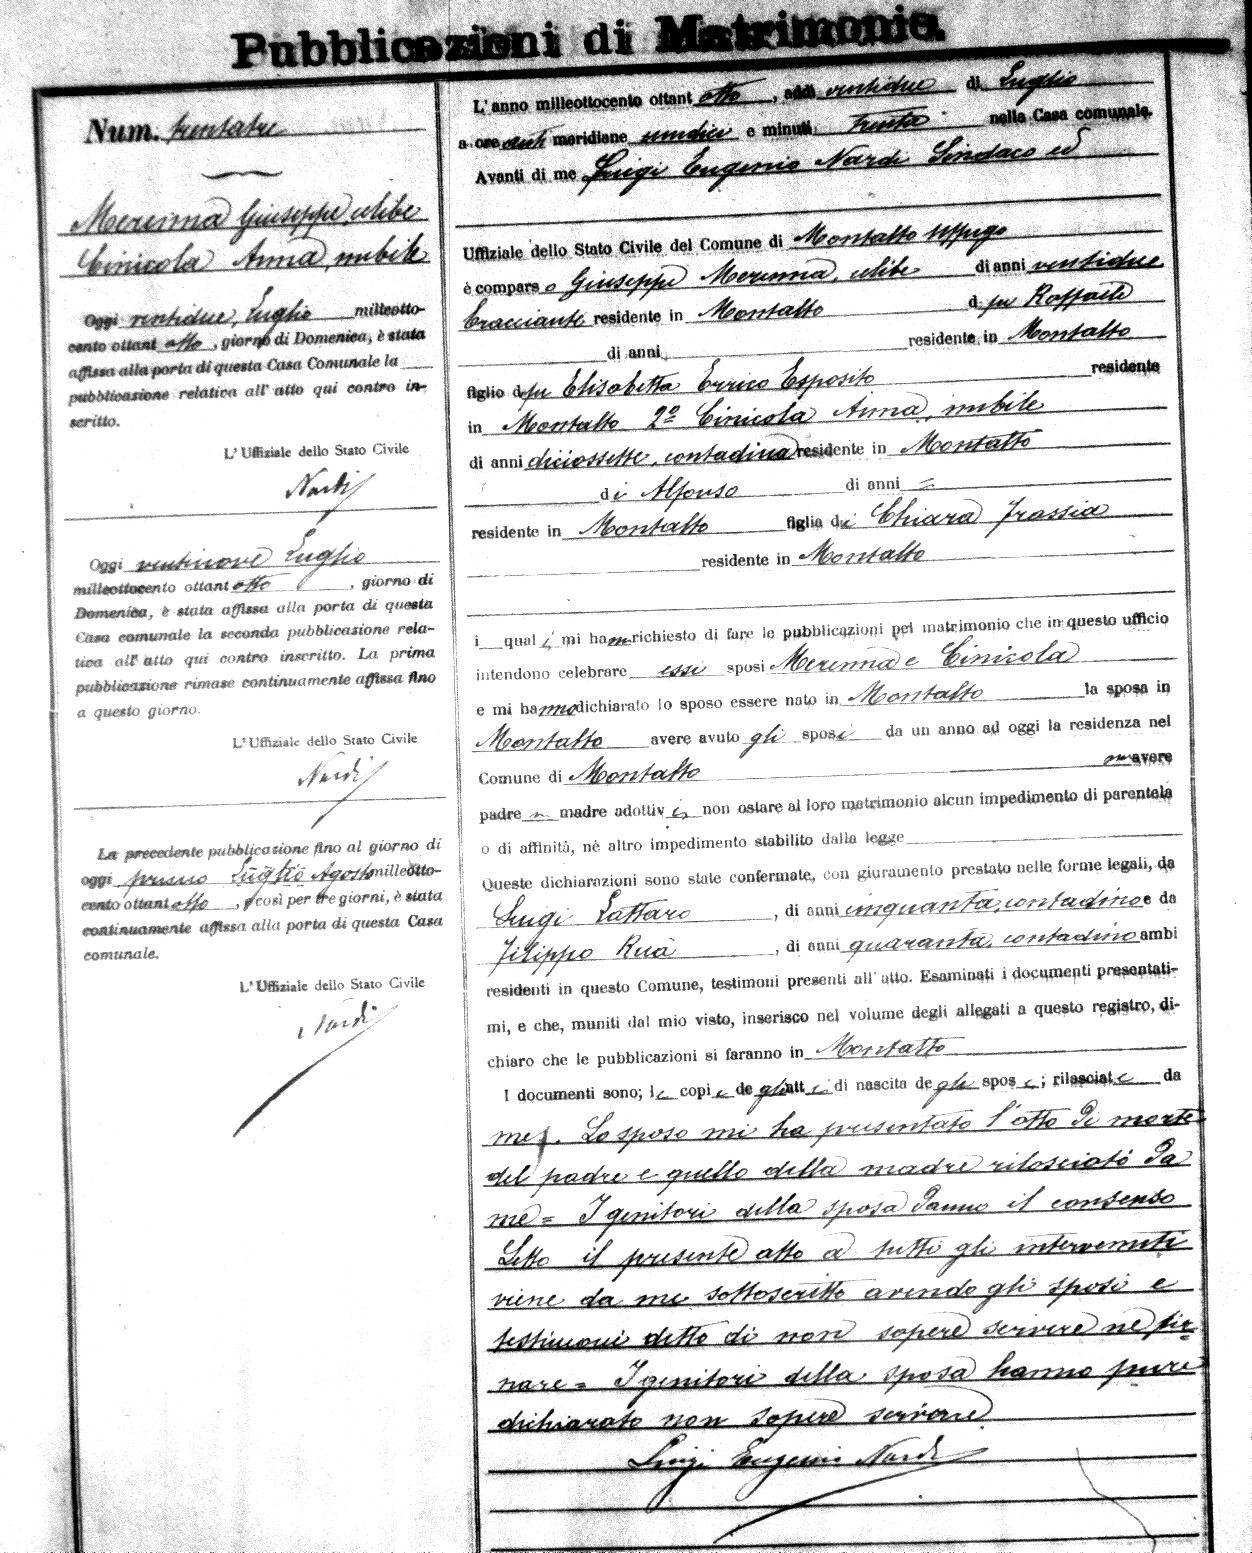 Pubblicazioni di Matrimonio.
Num. trentatre
Merenna Giuseppe, celibe
Cinicola Anna, nubile
Oggi ventidue, Luglio milleotto-
cento ottant otto, giorno di Domenica, è stata
affissa alla porta di questa Casa Comunale la
pubblicazione relativa all' atto qui contro in-
scritto.
L' Uffiziale dello Stato Civile
Nardi
Oggi ventinove Luglio
milleottocento ottant otto, giorno di
Domenica, è stata affissa alla porta di questa
Casa comunale la seconda pubblicazione rela-
tiva all' atto qui contro inscritto. La prima
pubblicazione rimase continuamente affissa fino
a questo giorno.
L' Uffiziale dello Stato Civile
Nardi
La precedente pubblicazione fino al giorno di
oggi primo Luglio Agosto milleotto-
cento ottant otto, e così per tre giorni, è stata
continuamente affissa alla porta di questa Casa
comunale.
L' Uffiziale dello Stato Civile
Nardi
L' anno milleottocento ottant otto, addì ventidue di Luglio
a ore anti meridiane undici e minuti trenta nella Casa comunale.
Avanti di me Luigi Eugenio Nardi Sindaco ed
Uffiziale dello Stato Civile del Comune di Montalto Uffugo
è compars o Giuseppe Merenna, celibe di anni ventidue
bracciante residente in Montalto d fu Raffaele
di anni residente in Montalto
figlio d fu Elisabetta Errico Esposito residente
in Montalto 2º Cinicola Anna, nubile
di anni diciossette, contadina residente in Montalto
di Alfonso di anni =
residente in Montalto figlia di Chiara Frassia
residente in Montalto
i qual i mi hanno richiesto di fare le pubblicazioni pel matrimonio che in questo ufficio
intendono celebrare essi sposi Merenna e Cinicola
e mi hanno dichiarato lo sposo essere nato in Montalto la sposa in
Montalto avere avuto gli sposi da un anno ad oggi la residenza nel
Comune di Montalto avere
padre n madre adottiv i, non ostare al loro matrimonio alcun impedimento di parentela
o di affinità, nè altro impedimento stabilito dalla legge
Queste dichiarazioni sono state confermate, con giuramento prestato nelle forme legali, da
Luigi Lattaro, di anni cinquanta, contadino e da
Filippo Ruà, di anni quaranta, contadino ambi
residenti in questo Comune, testimoni presenti all' atto. Esaminati i documenti presentati-
mi, e che, muniti dal mio visto, inserisco nel volume degli allegati a questo registro, di-
chiaro che le pubblicazioni si faranno in Montalto
I documenti sono; le copie de gli atti di nascita de gli sposi; rilasciate da
me. Lo sposo mi ha presentato l'atto di morte
del padre e quello della madre rilasciato da
me = I genitori della sposa danno il consenso
Letto il presente atto a tutti gli intervenuti
viene da me sottoscritto avendo gli sposi e
testimoni detto di non sapere scrivere ne fir-
mare = I genitori della sposa hanno pure
dichiarato non sapere scrivere
Luigi Eugenio Nardi